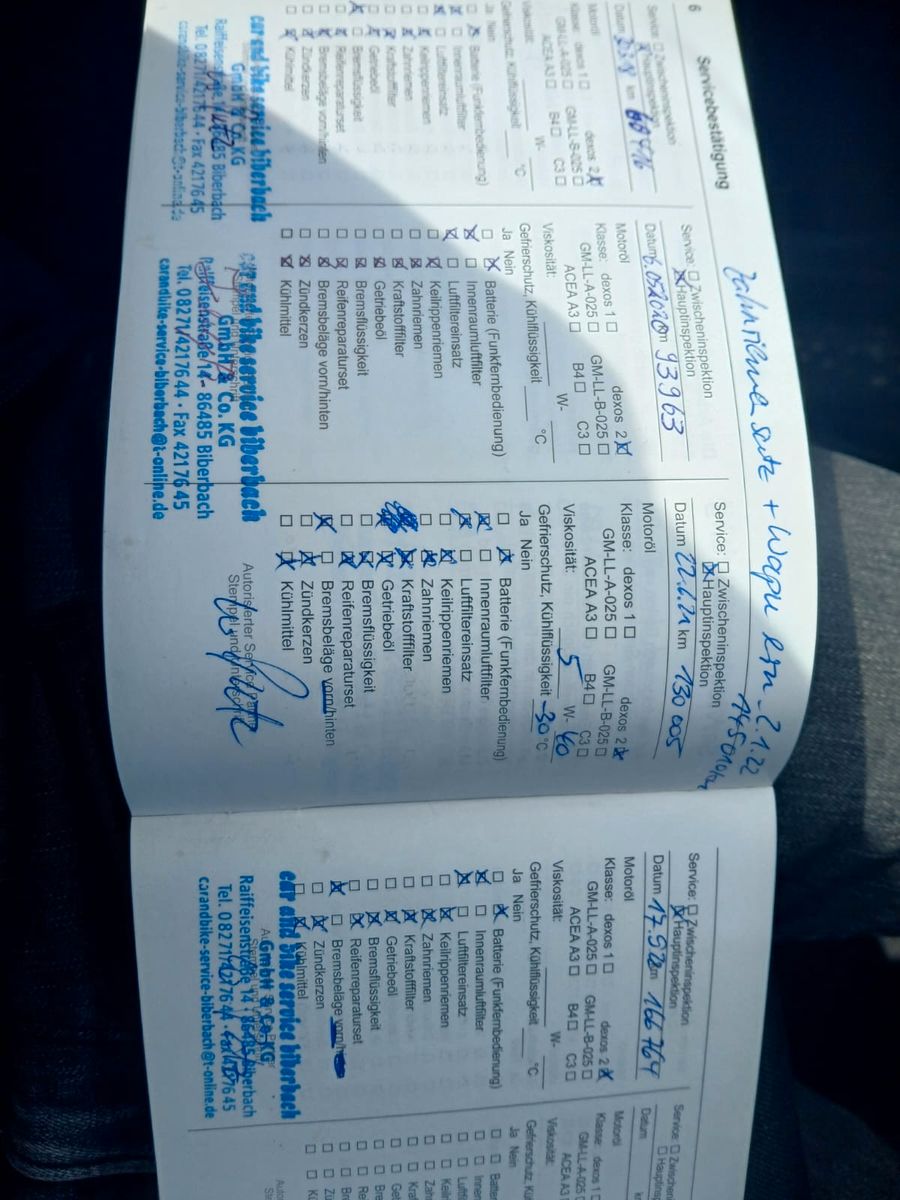 6
Servicebestätigung
Zahnriemensatz + Wapu ern. 2.1.22
Service: Zwischeninspektion
Hauptinspektion
Datum km
Motoröl
Klasse: dexos 1 dexos 2
GM-LL-A-025 GM-LL-B-025
ACEA A3 B4 C3
Viskosität: W-
Gefrierschutz, Kühlflüssigkeit °C
Ja Nein
Batterie (Funkfernbedienung)
Innenraumluftfilter
Luftfiltereinsatz
Keilrippenriemen
Zahnriemen
Kraftstofffilter
Getriebeöl
Bremsflüssigkeit
Reifenreparaturset
Bremsbeläge vorn/hinten
Zündkerzen
Kühlmittel
car and bike service biberbach
GmbH & Co. KG
Biberbach
Tel. 08271/4217644 · Fax 4217645
carandbike-service-biberbach@t-online.de
Service: Zwischeninspektion
Hauptinspektion
Datum km 93963
Motoröl
Klasse: dexos 1 dexos 2
GM-LL-A-025 GM-LL-B-025
ACEA A3 B4 C3
Viskosität: W-
Gefrierschutz, Kühlflüssigkeit °C
Ja Nein
Batterie (Funkfernbedienung)
Innenraumluftfilter
Luftfiltereinsatz
Keilrippenriemen
Zahnriemen
Kraftstofffilter
Getriebeöl
Bremsflüssigkeit
Reifenreparaturset
Bremsbeläge vorn/hinten
Zündkerzen
Kühlmittel
car and bike service biberbach
GmbH & Co. KG
Raiffeisenstraße 14 · 86485 Biberbach
Tel. 08271/4217644 · Fax 4217645
carandbike-service-biberbach@t-online.de
Service: Zwischeninspektion
Hauptinspektion
Datum 22.6.21 km 130 005
Motoröl
Klasse: dexos 1 dexos 2
GM-LL-A-025 GM-LL-B-025
ACEA A3 B4 C3
Viskosität: 5 W-40
Gefrierschutz, Kühlflüssigkeit -30 °C
Ja Nein
Batterie (Funkfernbedienung)
Innenraumluftfilter
Luftfiltereinsatz
Keilrippenriemen
Zahnriemen
Kraftstofffilter
Getriebeöl
Bremsflüssigkeit
Reifenreparaturset
Bremsbeläge vorn/hinten
Zündkerzen
Kühlmittel
Autorisierter Service Partner
Stempel und Unterschrift
Service: Zwischeninspektion
Hauptinspektion
Datum 17.5.22 km 166 764
Motoröl
Klasse: dexos 1 dexos 2
GM-LL-A-025 GM-LL-B-025
ACEA A3 B4 C3
Viskosität: W-
Gefrierschutz, Kühlflüssigkeit °C
Ja Nein
Batterie (Funkfernbedienung)
Innenraumluftfilter
Luftfiltereinsatz
Keilrippenriemen
Zahnriemen
Kraftstofffilter
Getriebeöl
Bremsflüssigkeit
Reifenreparaturset
Bremsbeläge vorn/
Zündkerzen
Kühlmittel
car and bike service biberbach
GmbH & Co. KG
Raiffeisenstraße 14 · 86485 Biberbach
Tel. 08271/4217644
carandbike-service-biberbach@t-online.de
Service:
Datum
Motoröl
Klasse: dexos 1
GM-LL-A-025
ACEA A3
Viskosität:
Gefrierschutz,
Ja Nein